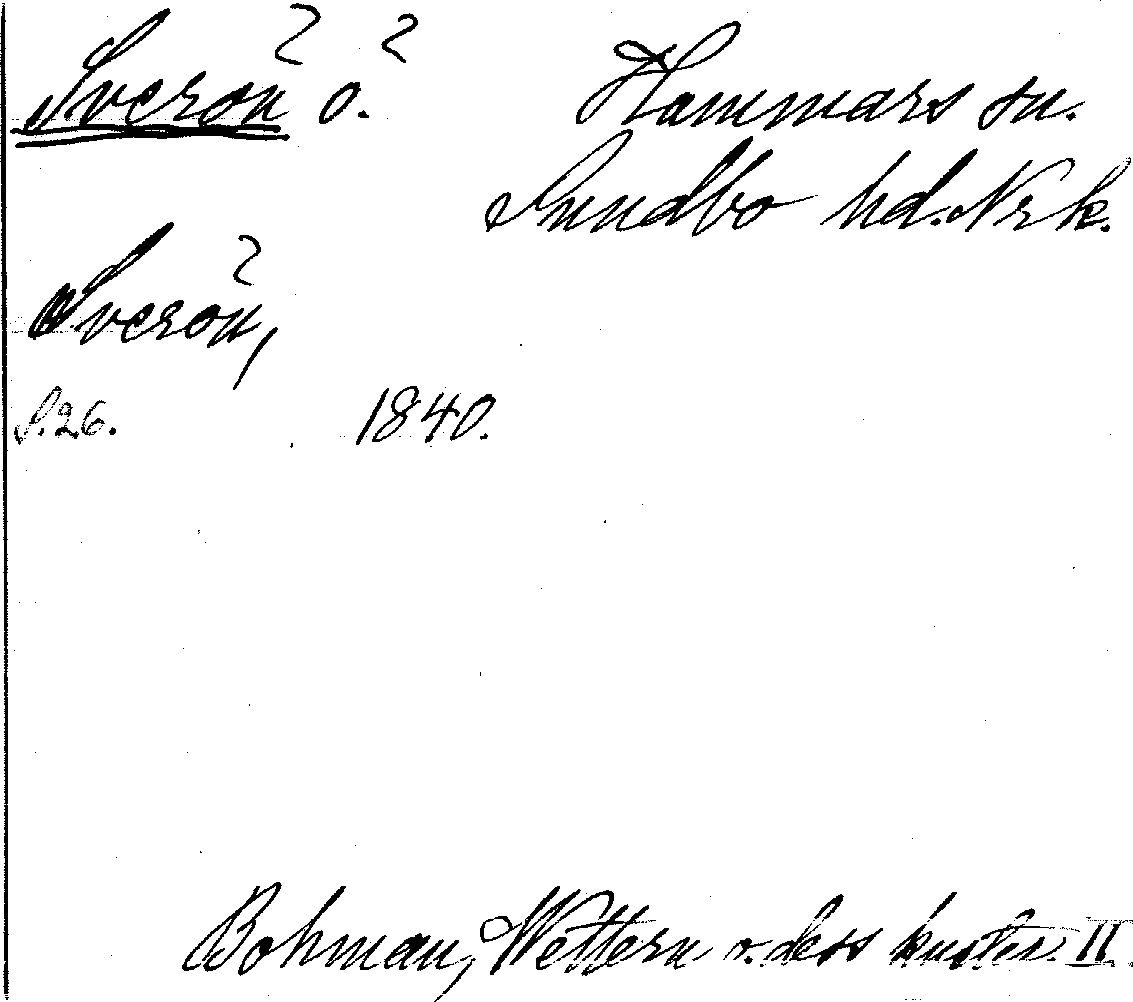 Sverön ö. Hammars sn.
Sundbo hd. Nrk.
Sverön,
S. 26. 1840.
Bohman, Wettern o. dess kuster. II.